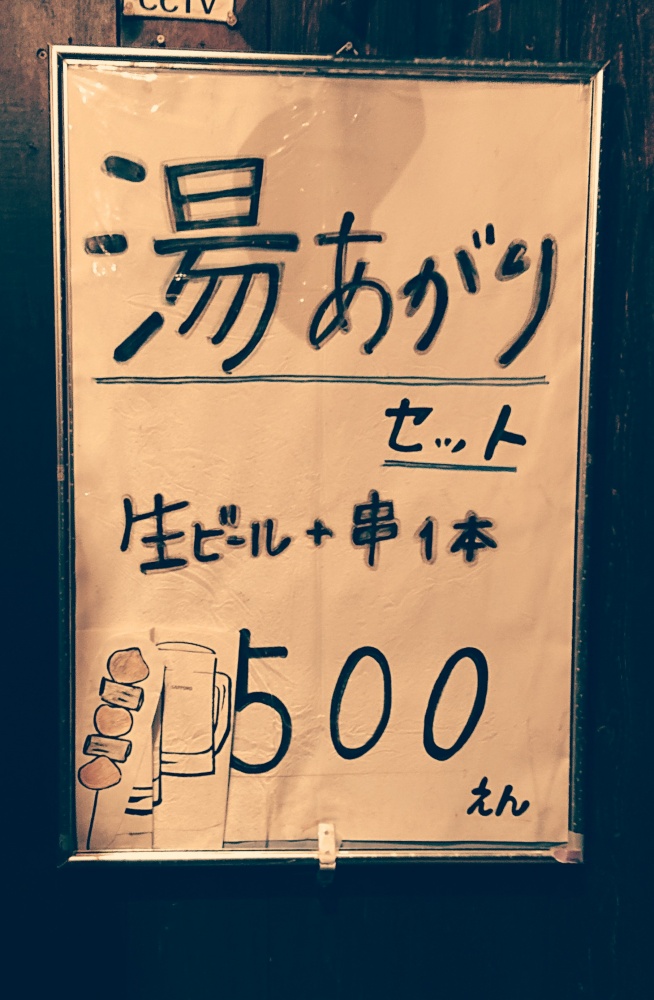 CCTV
湯あがり
セット
生ビール+串1本
SAPPORO
500
えん